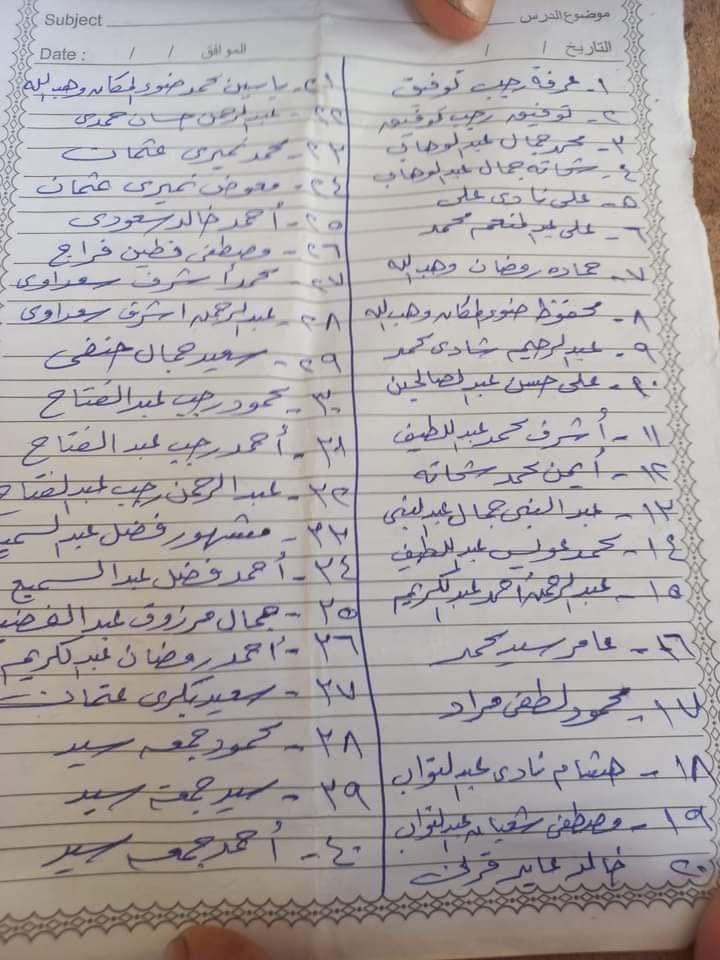 Subject
موضوع الدرس
Date : / /
الموافق / /
التاريخ / /
١- عرفة رجب توفيق
٢- توفيق رجب توفيق
٣- محمد جمال عبد الوهاب
٤- شحاته جمال عبد الوهاب
٥- على نادى على
٦- على عبد المنعم محمد
٧- حماده رمضان وهب الله
٨- محفوظ ضوء المكان وهب الله
٩- عبد الرحيم شادى محمد
١٠- على حسن عبد الصالحين
١١- أشرف محمد عبد اللطيف
١٢- أيمن محمد شحاته
١٣- عبد النبى جمال عبد النبى
١٤- محمد عويس عبد اللطيف
١٥- عبد الرحمن أحمد عبد الكريم
١٦- عامر سيد محمد
١٧- محمود لطفى مراد
١٨- هشام نادى عبد التواب
١٩- مصطفى شعبان عبد التواب
٢٠- خالد عايد قرنى
٢١- ياسين محمد ضوء المكان وهب الله
٢٢- عبد الرحمن حسان حمدى
٢٣- محمد نميرى عثمان
٢٤- معوض نميرى عثمان
٢٥- أحمد خالد سعودى
٢٦- مصطفى فطين فراج
٢٧- محمد أشرف سعداوى
٢٨- عبد الرحمن اشرف سعداوى
٢٩- سعيد جمال حنفى
٣٠- محمود رجب عبد الفتاح
٣١- أحمد رجب عبد الفتاح
٣٢- عبد الرحمن رجب عبد الفتاح
٣٣- مشهور فضل عبد السميع
٣٤- أحمد فضل عبد السميع
٣٥- جمال مرزوق
٣٦- أحمد رمضان عبد الكريم
٣٧- سعيد بكرى عثمان
٣٨- محمود جمعه سيد
٣٩- سيد جمعة سيد
٤٠- أحمد جمعه سيد